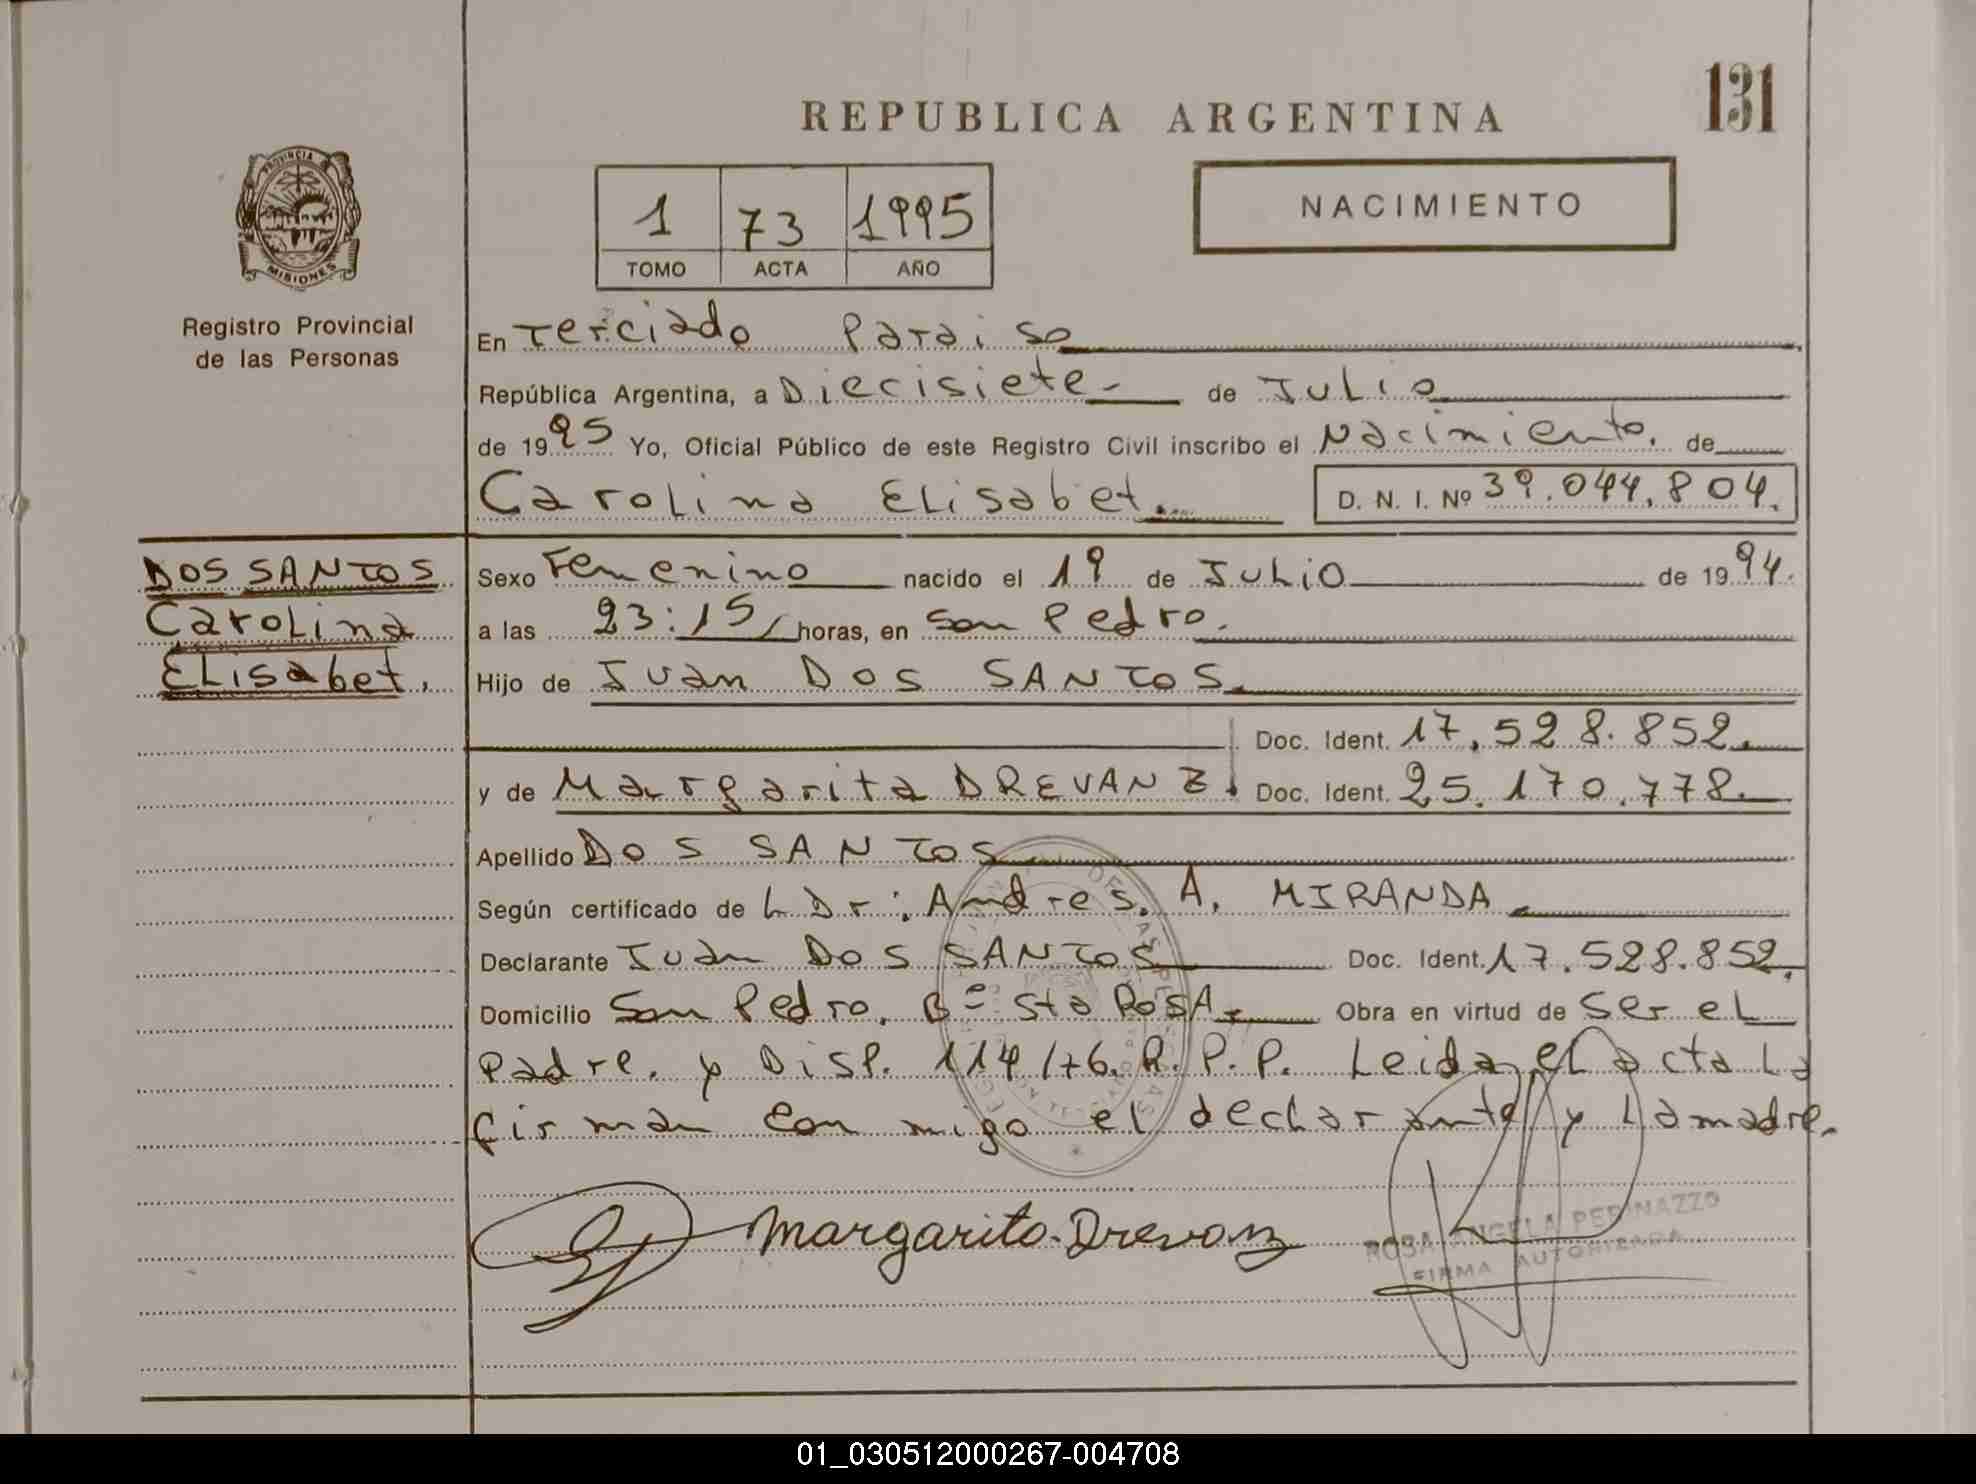 131
REPUBLICA ARGENTINA
PROVINCIA
MISIONES
Registro Provincial
de las Personas
1 73 1995
TOMO ACTA AÑO
NACIMIENTO
En Terciado Paraiso
República Argentina, a Diecisiete- de Julio
de 1995 Yo, Oficial Público de este Registro Civil inscribo el Nacimiento. de
Carolina Elisabet. D. N. I. Nº 39.044.804.
DOS SANTOS
Carolina
Elisabet.
Sexo Femenino nacido el 19 de Julio de 1994.
a las 23:15/ horas, en San Pedro.
Hijo de Juan DOS SANTOS.
Doc. Ident. 17.528.852.
y de Margarita DREVANZ. Doc. Ident. 25.170.778.
Apellido DOS SANTOS
Según certificado de L Dr: Andres. A. MIRANDA
Declarante Juan DOS SANTOS Doc. Ident. 17.528.852.
Domicilio San Pedro. Bº Sta ROSA. Obra en virtud de Ser el
Padre. y Disp. 114/76. R.P.P. Leida el acta La
firman con migo el declarante y La madre.
Margarita Drevanz
ROSA ANGELA PERINAZZO
FIRMA AUTORIZADA
01_030512000267-004708